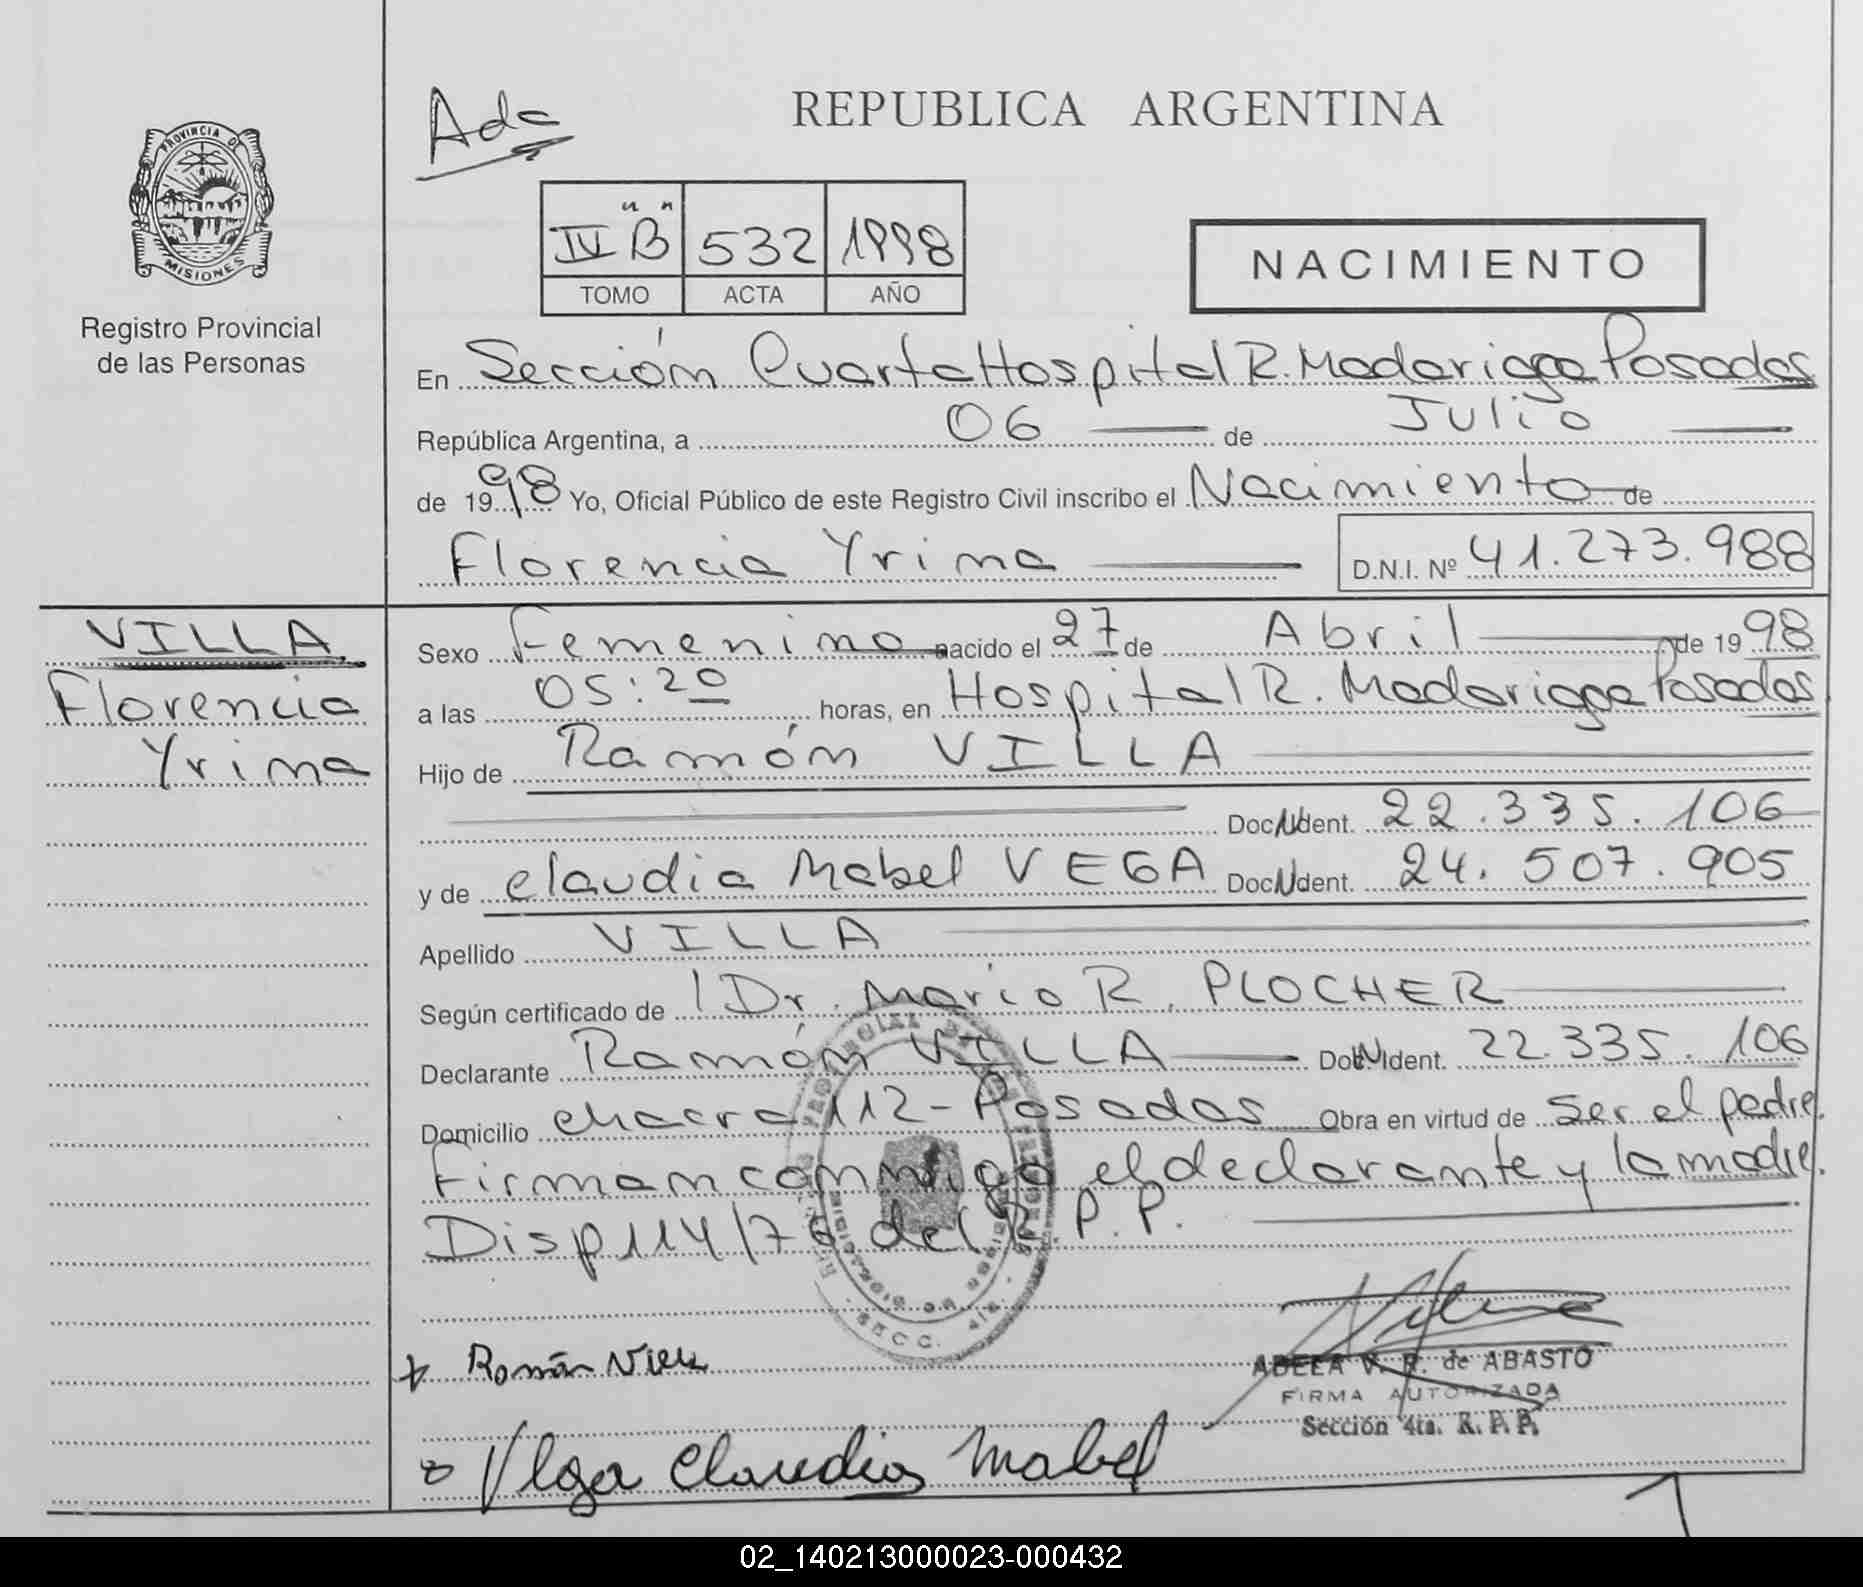 Ada
REPUBLICA ARGENTINA
PROVINCIA DE
MISIONES
Registro Provincial
de las Personas
IV "B" 532 1998
TOMO ACTA AÑO
NACIMIENTO
En Sección Cuarta Hospital R. Madariaga Posadas
República Argentina, a 06 de Julio
de 1998 Yo, Oficial Público de este Registro Civil inscribo el Nacimiento de
Florencia Yrina
D.N.I. Nº 41.273.988
VILLA
Florencia
Yrina
Sexo Femenino nacido el 27 de Abril de 1998
a las 05:20 horas, en Hospital R. Madariaga Posadas
Hijo de Ramón VILLA
Doc. Ident. 22.335.106
y de Claudia Mabel VEGA Doc. Ident. 24.507.905
Apellido VILLA
Según certificado de Dr. Mario R. PLOCHER
Declarante Ramón VILLA Doc. Ident. 22.335.106
Domicilio Chacra 112 - Posadas Obra en virtud de ser el padre.
Firman conmigo el declarante y la madre.
Disp 114/76 del R.P.P.
Ramón
ADELA V. de ABASTO
FIRMA AUTORIZADA
Sección 4ta. R.P.P.
Claudia Mabel
02_140213000023-000432